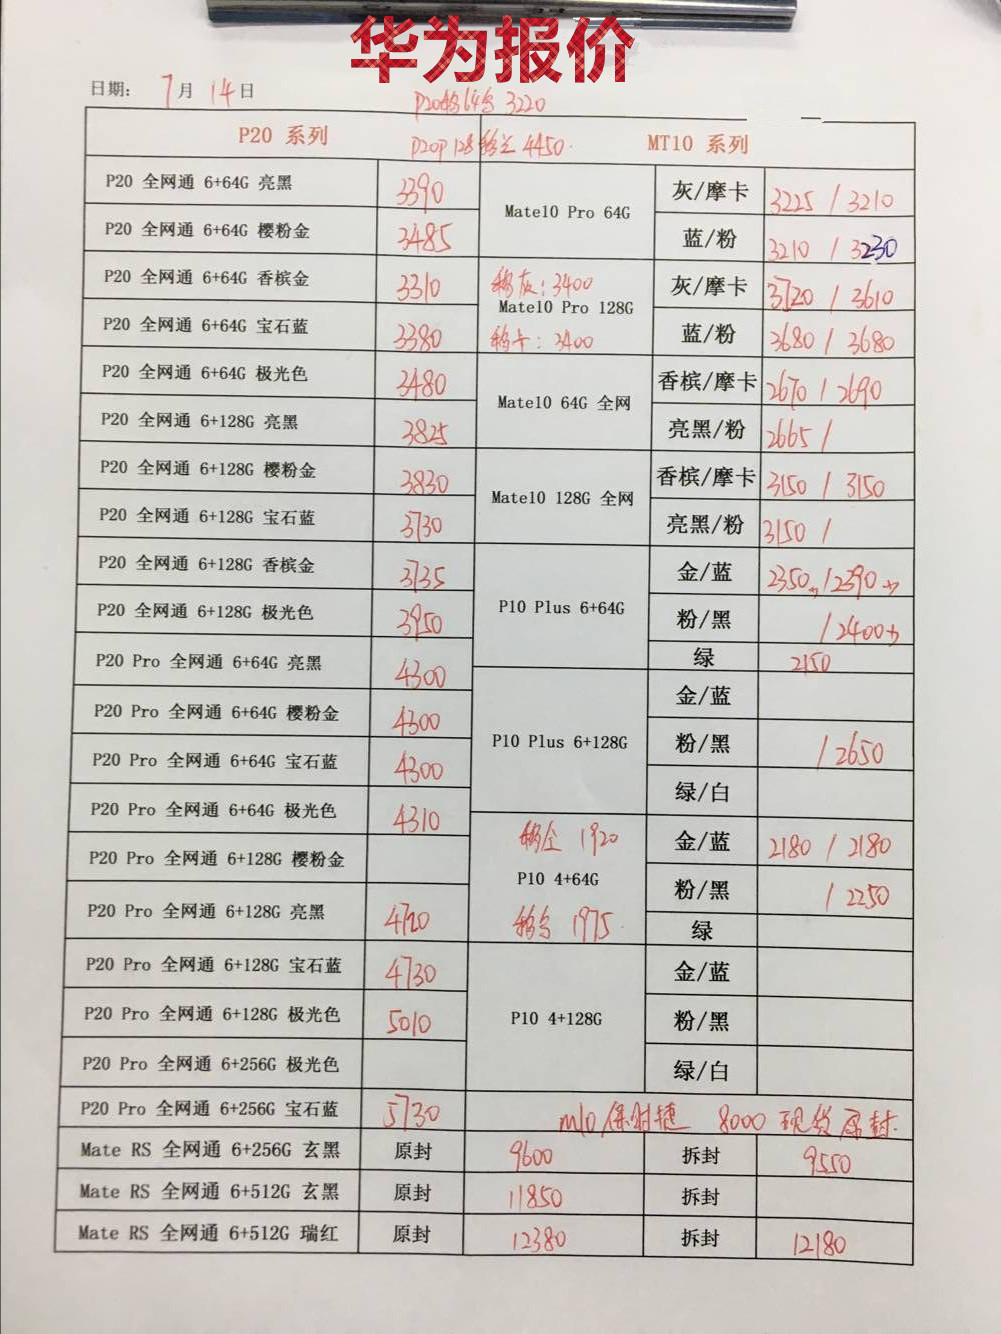 华为报价
日期: 7月14日
P20移乌64G 3220
P20 系列 P20P 128移兰 4450. MT10 系列
P20 全网通 6+64G 亮黑 3390
P20 全网通 6+64G 樱粉金 3485
P20 全网通 6+64G 香槟金 3310
P20 全网通 6+64G 宝石蓝 3380
P20 全网通 6+64G 极光色 3480
P20 全网通 6+128G 亮黑 3825
P20 全网通 6+128G 樱粉金 3830
P20 全网通 6+128G 宝石蓝 3730
P20 全网通 6+128G 香槟金 3735
P20 全网通 6+128G 极光色 3950
P20 Pro 全网通 6+64G 亮黑 4300
P20 Pro 全网通 6+64G 樱粉金 4300
P20 Pro 全网通 6+64G 宝石蓝 4300
P20 Pro 全网通 6+64G 极光色 4310
P20 Pro 全网通 6+128G 樱粉金
P20 Pro 全网通 6+128G 亮黑 4720
P20 Pro 全网通 6+128G 宝石蓝 4730
P20 Pro 全网通 6+128G 极光色 5010
P20 Pro 全网通 6+256G 极光色
P20 Pro 全网通 6+256G 宝石蓝 5730
Mate10 Pro 64G
灰/摩卡 3225 / 3210
蓝/粉 3210 / 3230
移灰: 3400
Mate10 Pro 128G
移卡: 3400
灰/摩卡 3720 / 3610
蓝/粉 3680 / 3680
Mate10 64G 全网
香槟/摩卡 2670 / 2690
亮黑/粉 2665 /
Mate10 128G 全网
香槟/摩卡 3150 / 3150
亮黑/粉 3150 /
P10 Plus 6+64G
金/蓝 2350 / 2390
粉/黑 / 2400
绿 2150
P10 Plus 6+128G
金/蓝
粉/黑 / 2650
绿/白
移金 1920
P10 4+64G
移乌 1975.
金/蓝 2180 / 2180
粉/黑 / 2250
绿
P10 4+128G
金/蓝
粉/黑
绿/白
m10保时捷 8000 现货原封.
Mate RS 全网通 6+256G 玄黑 原封 9600 拆封 9550
Mate RS 全网通 6+512G 玄黑 原封 11850 拆封
Mate RS 全网通 6+512G 瑞红 原封 12380 拆封 12180